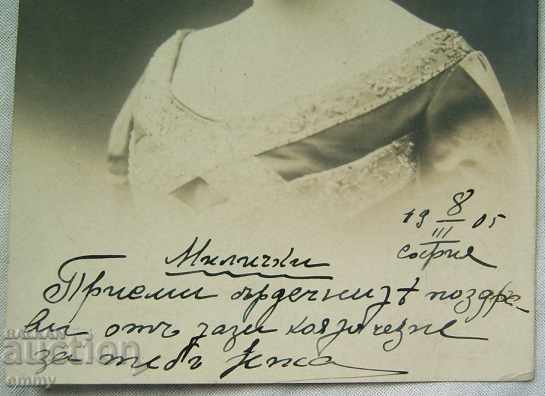 19 8/III 05
София
Милички
Приеми сърдечнитѣ поздра-
ви отъ тази която чезне
за тебъ
auction.ru
emmy